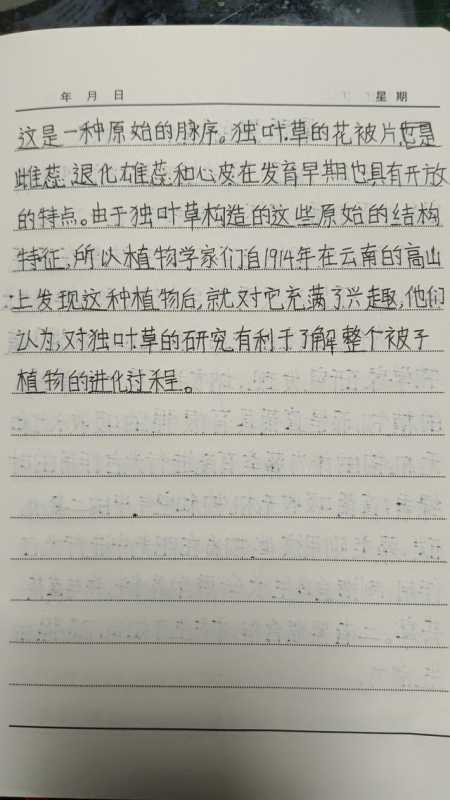 年 月 日 星 期
这是一种原始的脉序。独叶草的花被片也是
雌蕊,退化雄蕊和心皮在发育早期也具有开放
的特点。由于独叶草构造的这些原始的结构
特征,所以植物学家们自1914年在云南的高山
上发现这种植物后,就对它充满了兴趣,他们
认为,对独叶草的研究有利于了解整个被子
植物的进化过程。